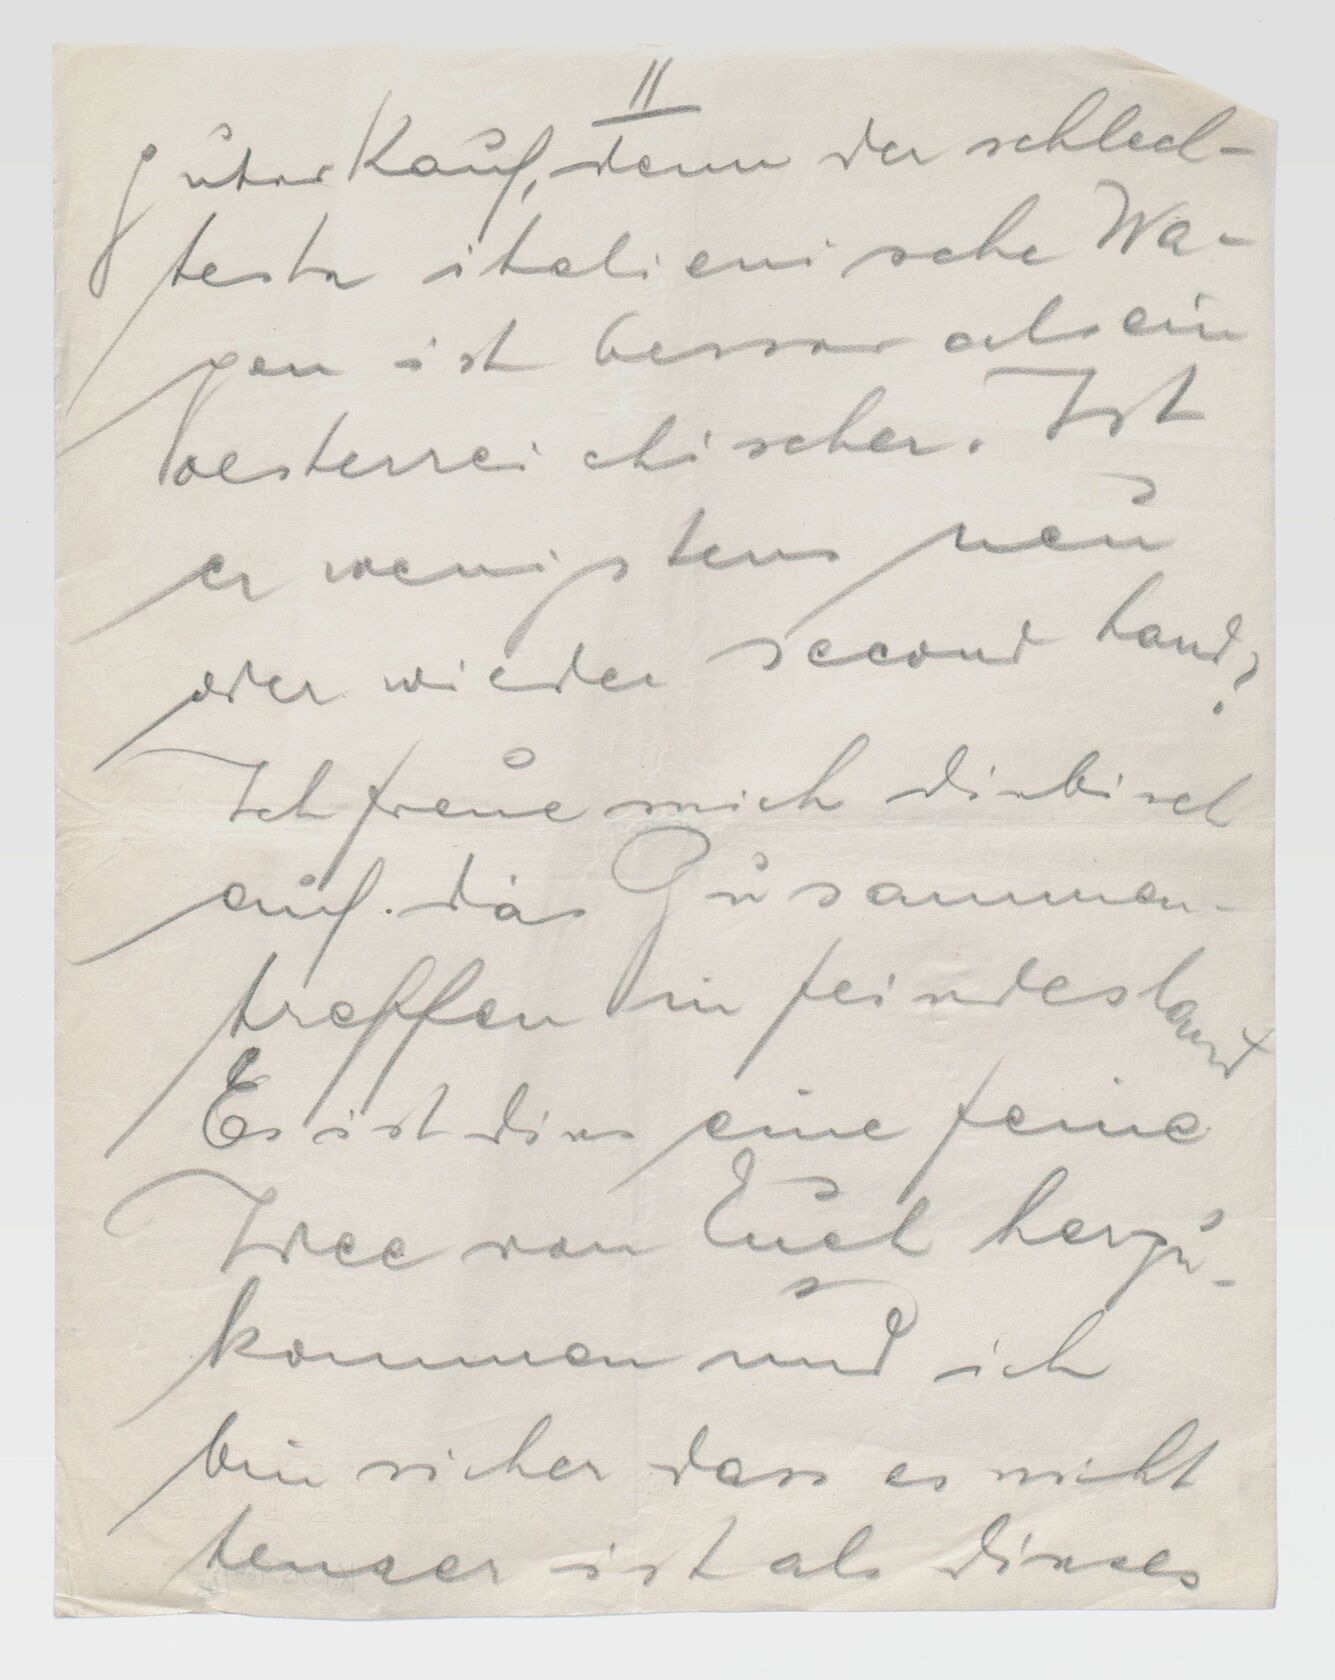 II
guter Kauf, denn der schlech-
teste italienische Wa-
gen ist besser als ein
oesterreichischer. Ist
er wenigstens neu
oder wieder second hand?
Ich freue mich diebisch
auf das Zusammen-
treffen in feindesland
Es ist dies eine feine
Idee von Euch herzu-
kommen und ich
bin sicher dass es nicht
teurer ist als dieses